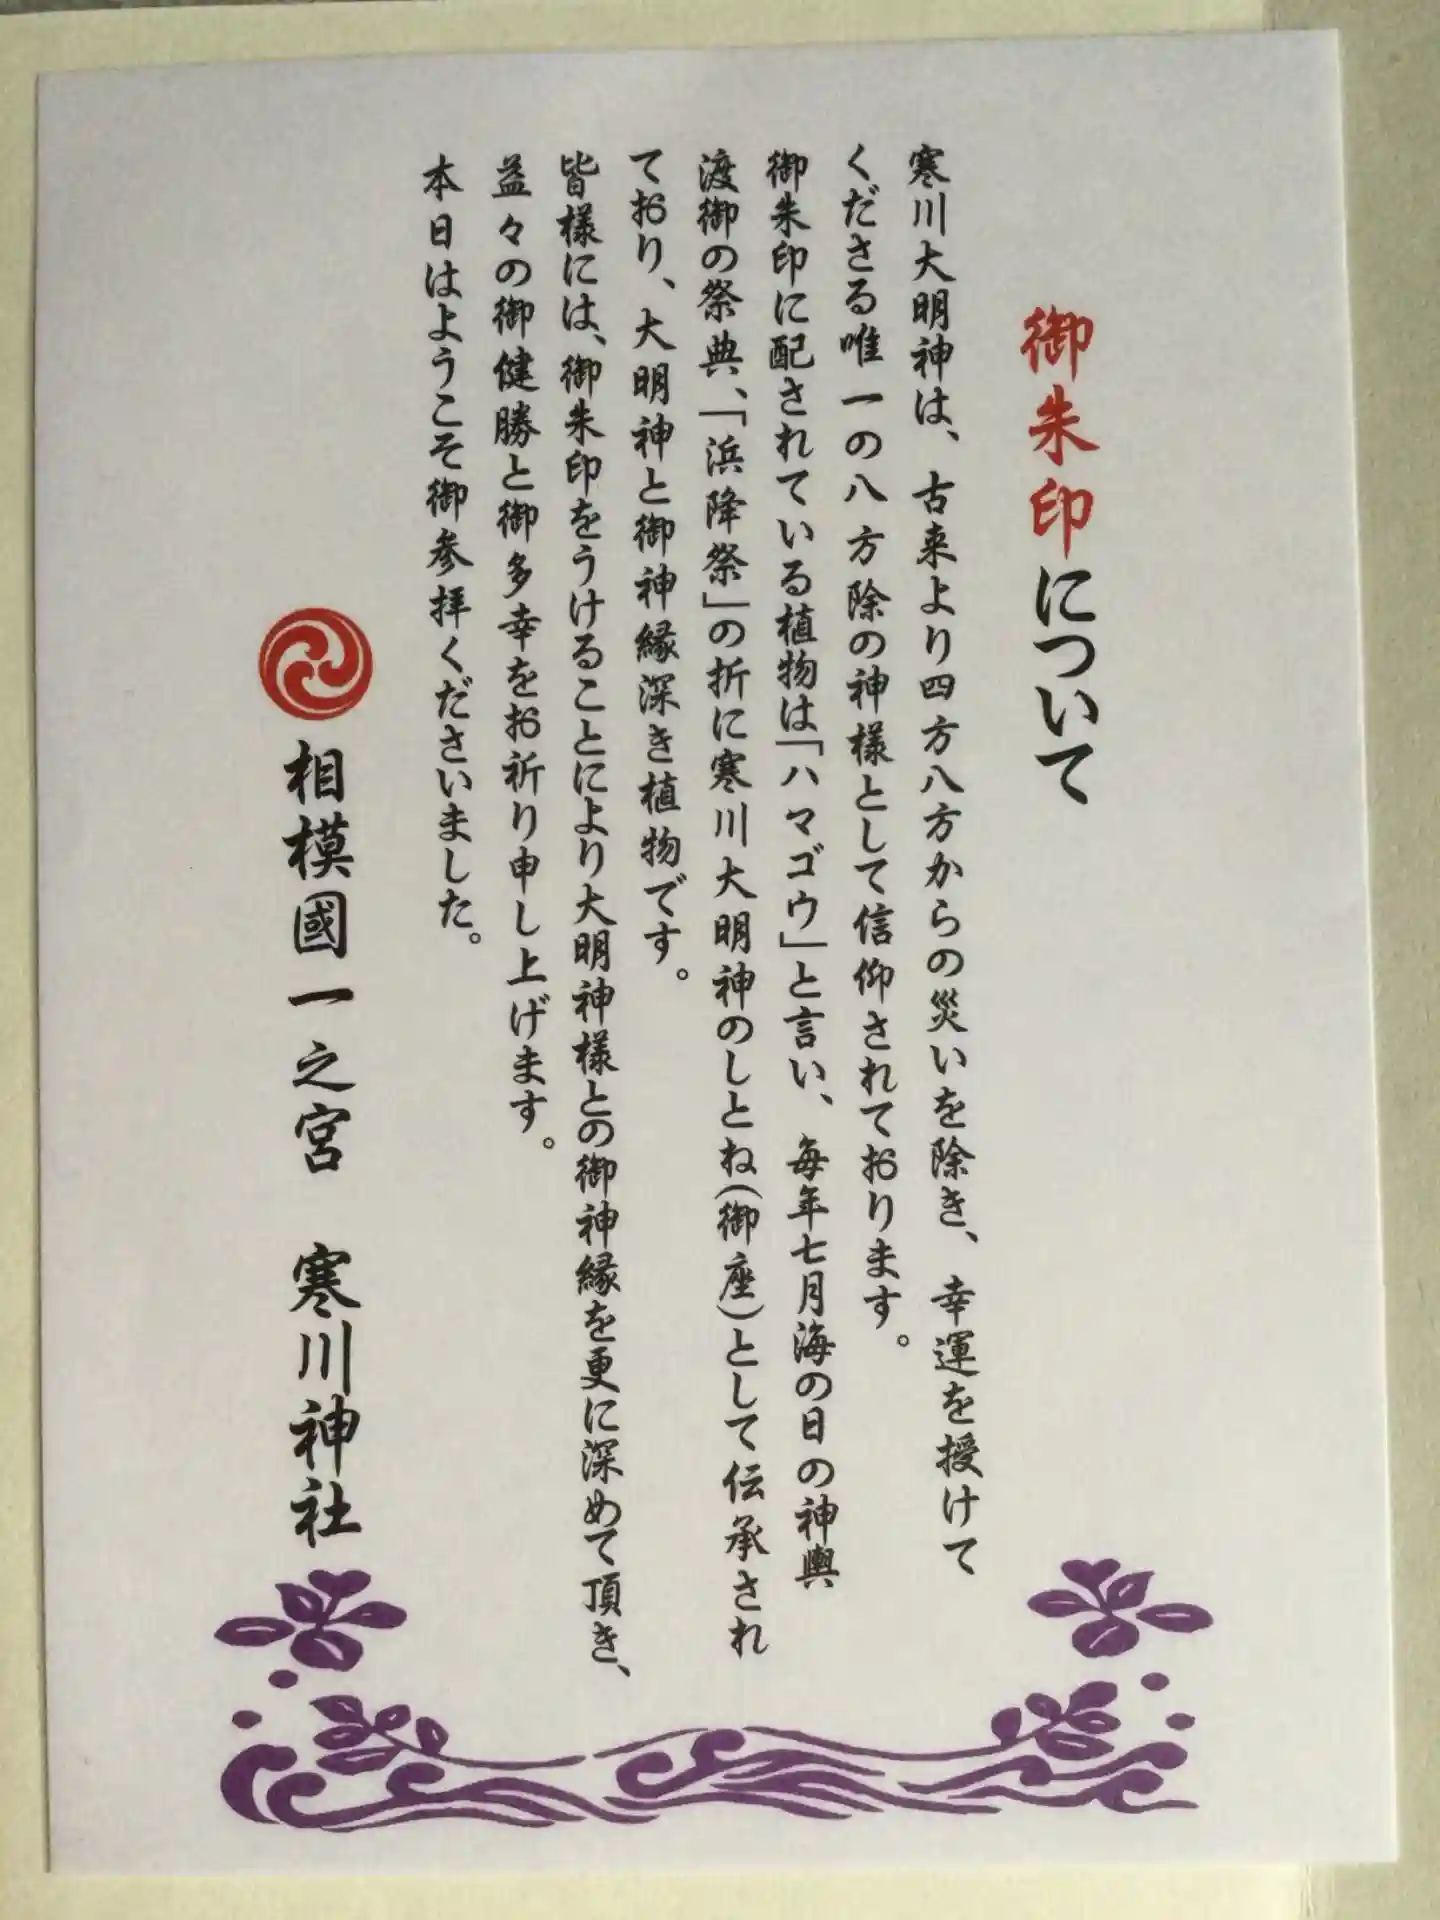 御朱印について
寒川大明神は、古来より四方八方からの災いを除き、幸運を授けて
くださる唯一の八方除の神様として信仰されております。
御朱印に配されている植物は「ハマゴウ」と言い、毎年七月海の日の神輿
渡御の祭典、「浜降祭」の折に寒川大明神のしとね(御座)として伝承され
ており、大明神と御神縁深き植物です。
皆様には、御朱印をうけることにより大明神様との御神縁を更に深めて頂き、
益々の御健勝と御多幸をお祈り申し上げます。
本日はようこそ御参拝くださいました。
相模國一之宮　寒川神社